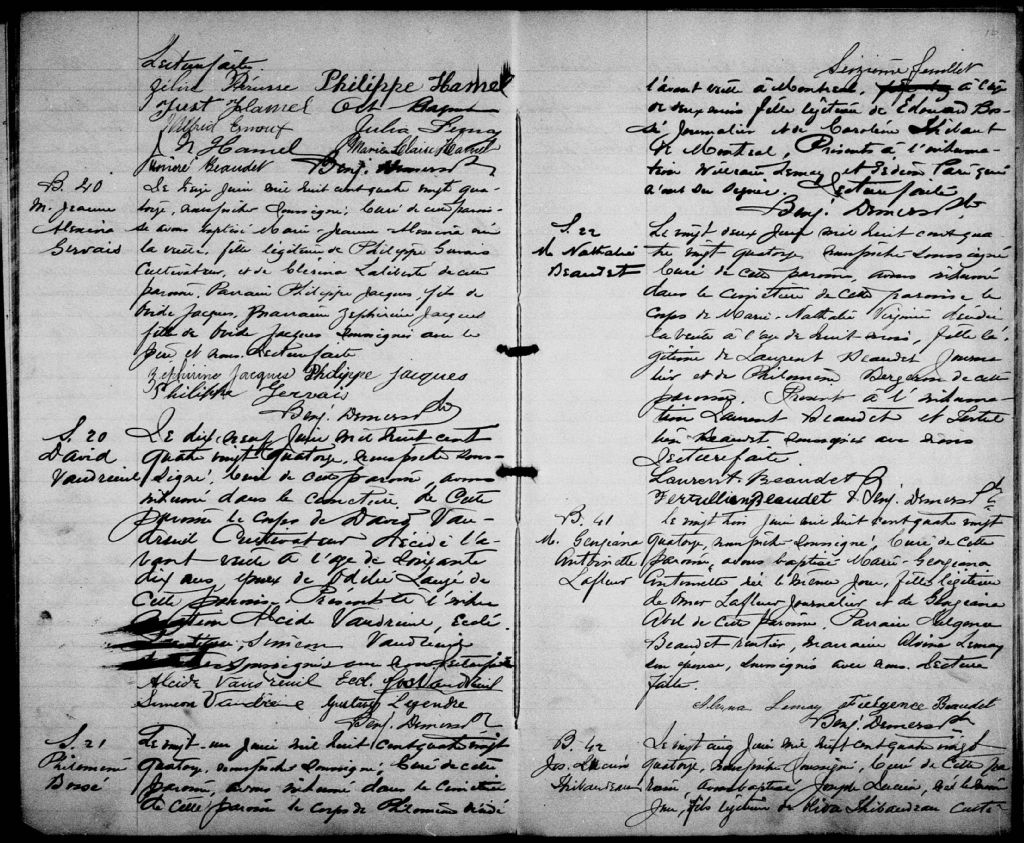 Lecture faite.
Philippe Hamel
Just Hamel Oct
Wilfrid Ernoux Julia Lemay
N Hamel Marie Claire Hamel
Honoré Beaudet Benj. Demers Ptr
B. 40
M. Jeanne
Almeria
Gervais
Le onze Juin mil huit cent quatre vingt qua-
torze, nous prêtre soussigné, Curé de cette parois-
se avons baptisé Marie-Jeanne-Almeria née
la veille, fille légitime de Philippe Gervais
Cultivateur, et de Clerina Laliberté de cette
paroisse, Parrain Philippe Jacques, fils de
Ovide Jacques, Marraine Zephirine Jacques
fille de Ovide Jacques soussignés avec le
père et nous. Lecture faite
Zéphirine Jacques Philippe Jacques
Philippe Gervais
Benj. Demers Ptr
S. 20
David
Vaudreuil
Le dix-neuf Juin mil huit cent
quatre vingt quatorze, nous prêtre sous-
signé, Curé de cette paroisse, avons
inhumé dans le cimetière de Cette
paroisse le corps de David Vau-
dreuil Cultivateur décédé l'a-
vant veille à l'age de soixante
dix ans, époux de Odelie Lauzé de
Cette paroisse. Présents à l'inhu-
mation Alcide Vaudreuil, Ecclé.
Siméon Vaudreuil
soussignés avec nous. Lecture faite
Alcide Vaudreuil Eccl. Jos Vaudreuil
Simeon Vaudreuil Gustave Legendre
Benj. Demers Ptr
S. 21
Philomène
Bossé
Le vingt-un Juin mil huit cent quatre vingt
quatorze, nous prêtre soussigné, Curé de cette
paroisse, avons inhumé dans le cimetière
de cette paroisse le corps de Philomène décédée
Seizième feuillet
l'avant veille à Montreal, à l'age
de deux mois fille légitime de Edouard Bos-
sé, Journalier et de Caroline Thibaut
de Montreal, Présents à l'inhuma-
tion William Lemay et Gédéon
n'ont su signer. Lecture faite
Benj. Demers Ptr
S. 22
M. Nathalie
Beaudet
Le vingt deux Juin mil huit cent qua-
tre vingt quatorze nous prêtre soussigné
Curé de cette paroisse, avons inhumé
dans le cimetière de cette paroisse le
corps de Marie-Nathalie Virginie décédée
la veille à l'age de huit mois, fille lé-
gitime de Laurent Beaudet Journa-
lier et de Philomène Bergeron de cette
paroisse. Présent à l'inhuma-
tion Laurent Beaudet et Tertul-
lien Beaudet, soussignés avec nous
Lecture faite
Laurent Beaudet
Tertullien Beaudet Benj. Demers Ptr
B. 41
M. Georgiana
Antoinette
Lafleur
Le vingt trois Juin mil huit cent quatre vingt
quatorze, nous prêtre soussigné, Curé de Cette
paroisse, avons baptisé Marie-Georgiana
Antoinette née le même jour, fille légitime
de Omer Lafleur Journalier et de Georgiana
Abel de Cette paroisse, Parrain Fulgence
Beaudet rentier, Marraine Alvina Lemay
son épouse, soussignés avec nous. Lecture
faite.
Alvina Lemay Fulgence Beaudet
Benj. Demers Ptr
B. 42
Jos. Lucien
Thibaudeau
Le vingt cinq Juin mil huit cent quatre vingt
quatorze, nous prêtre soussigné, Curé de Cette pa-
roisse, avons baptisé Joseph Lucien, né le même
jour, fils légitime de Thibaudeau culti-